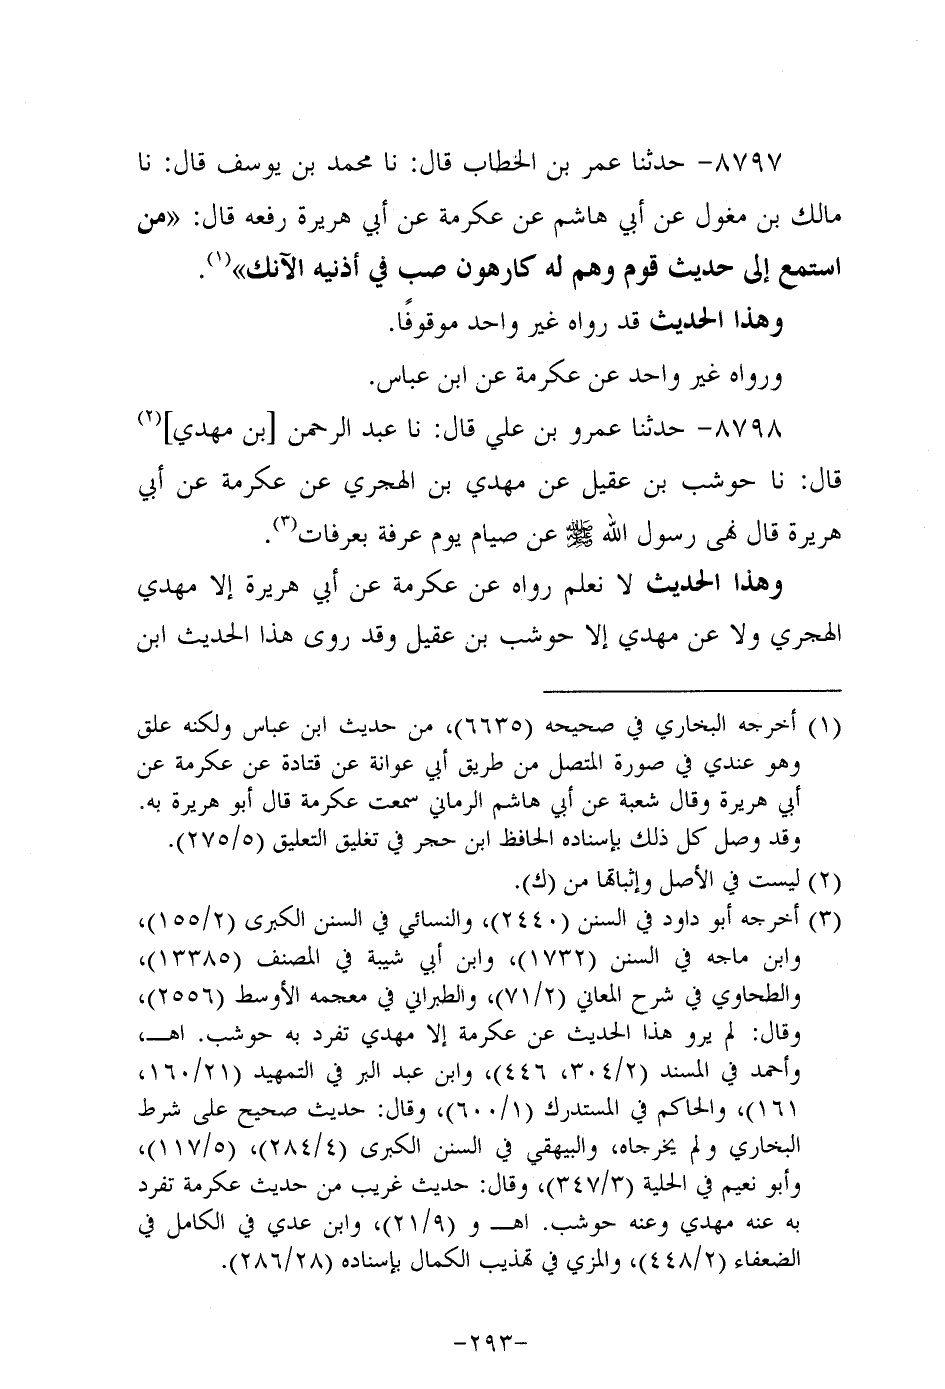 ٨٧٩٧- حدثنا عمر بن الخطاب قال: نا محمد بن يوسف قال: نا
مالك بن مغول عن أبي هاشم عن عكرمة عن أبي هريرة رفعه قال: «من
استمع إلى حديث قوم وهم له كارهون صب في أذنيه الآنك»(١).
وهذا الحديث قد رواه غير واحد موقوفًا.
ورواه غير واحد عن عكرمة عن ابن عباس.
٨٧٩٨- حدثنا عمرو بن علي قال: نا عبد الرحمن [بن مهدي](٢)
قال: نا حوشب بن عقيل عن مهدي بن الهجري عن عكرمة عن أبي
هريرة قال نهى رسول الله ﷺ عن صيام يوم عرفة بعرفات(٣).
وهذا الحديث لا نعلم رواه عن عكرمة عن أبي هريرة إلا مهدي
الهجري ولا عن مهدي إلا حوشب بن عقيل وقد روى هذا الحديث ابن
(١) أخرجه البخاري في صحيحه (٦٦٣٥)، من حديث ابن عباس ولكنه علق
وهو عندي في صورة المتصل من طريق أبي عوانة عن قتادة عن عكرمة عن
أبي هريرة وقال شعبة عن أبي هاشم الرماني سمعت عكرمة قال أبو هريرة به.
وقد وصل كل ذلك بإسناده الحافظ ابن حجر في تغليق التعليق (٢٧٥/٥).
(٢) ليست في الأصل وإثباتها من (ك).
(٣) أخرجه أبو داود في السنن (٢٤٤٠)، والنسائي في السنن الكبرى (١٥٥/٢)،
وابن ماجه في السنن (١٧٣٢)، وابن أبي شيبة في المصنف (١٣٣٨٥)،
والطحاوي في شرح المعاني (٧١/٢)، والطبراني في معجمه الأوسط (٢٥٥٦)،
وقال: لم يرو هذا الحديث عن عكرمة إلا مهدي تفرد به حوشب. اهـ،
وأحمد في المسند (٣٠٤/٢، ٤٤٦)، وابن عبد البر في التمهيد (١٦٠/٢١،
١٦١)، والحاكم في المستدرك (٦٠٠/١)، وقال: حديث صحيح على شرط
البخاري ولم يخرجاه، والبيهقي في السنن الكبرى (٢٨٤/٤)، (١١٧/٥)،
وأبو نعيم في الحلية (٣٤٧/٣)، وقال: حديث غريب من حديث عكرمة تفرد
به عنه مهدي وعنه حوشب. اهـ و (٢١/٩)، وابن عدي في الكامل في
الضعفاء (٤٤٨/٢)، والمزي في تهذيب الكمال بإسناده (٢٨٦/٢٨).
-٢٩٣-